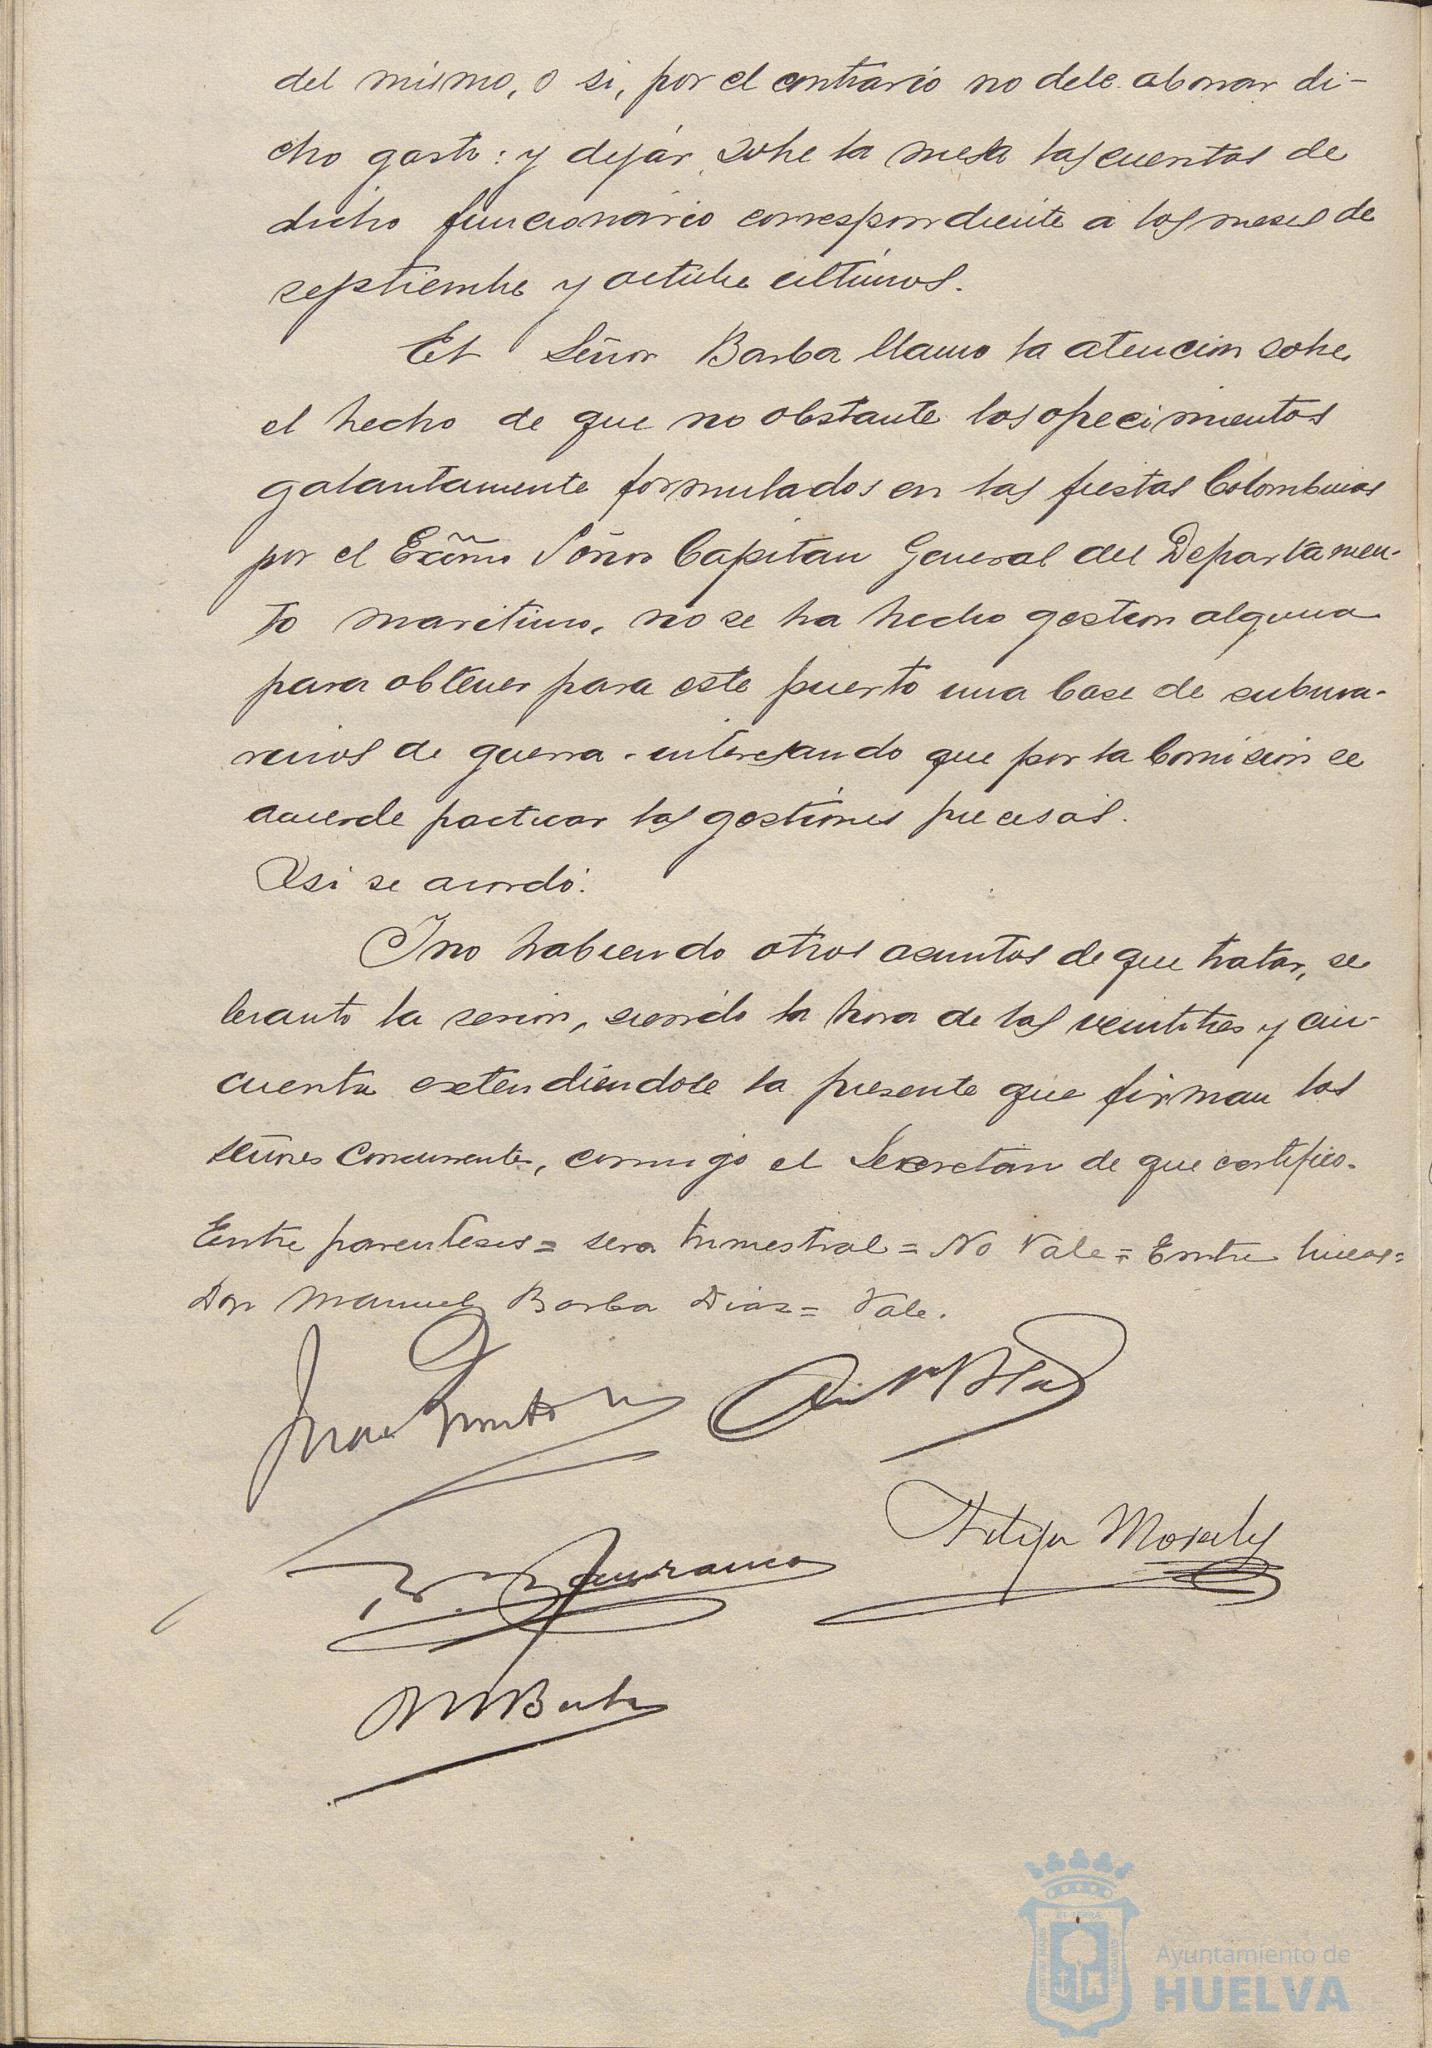 del mismo, o si, por el contrario no debe abonar di-
cho gasto: y dejar sobre la mesa las cuentas de
dicho funcionario correspondiente a los meses de
septiembre y octubre ultimos.
El Señor Barba llamo la atencion sobre
el hecho de que no obstante los ofrecimientos
galantamente formulados en las fiestas Colombinas
por el Excmo Señor Capitan General del Departamen-
to maritimo, no se ha hecho gestion alguna
para obtener para este puerto una base de subma-
rinos de guerra - interesando que por la Comision se
acuerde practicar las gestiones precisas.
Asi se acordó.
Y no habiendo otros asuntos de que tratar, se
levanto la sesion, siendo la hora de las veintitres y cin-
cuenta extendiendose la presente que firman los
señores concurrentes, conmigo el Secretario de que certifico.
Entre parentesis = sera trimestral = No Vale = Entre lineas =
Don Manuel Barba Diaz = Vale.
Juan Quintero
Felipe Morales
M Barba
Ayuntamiento de
HUELVA